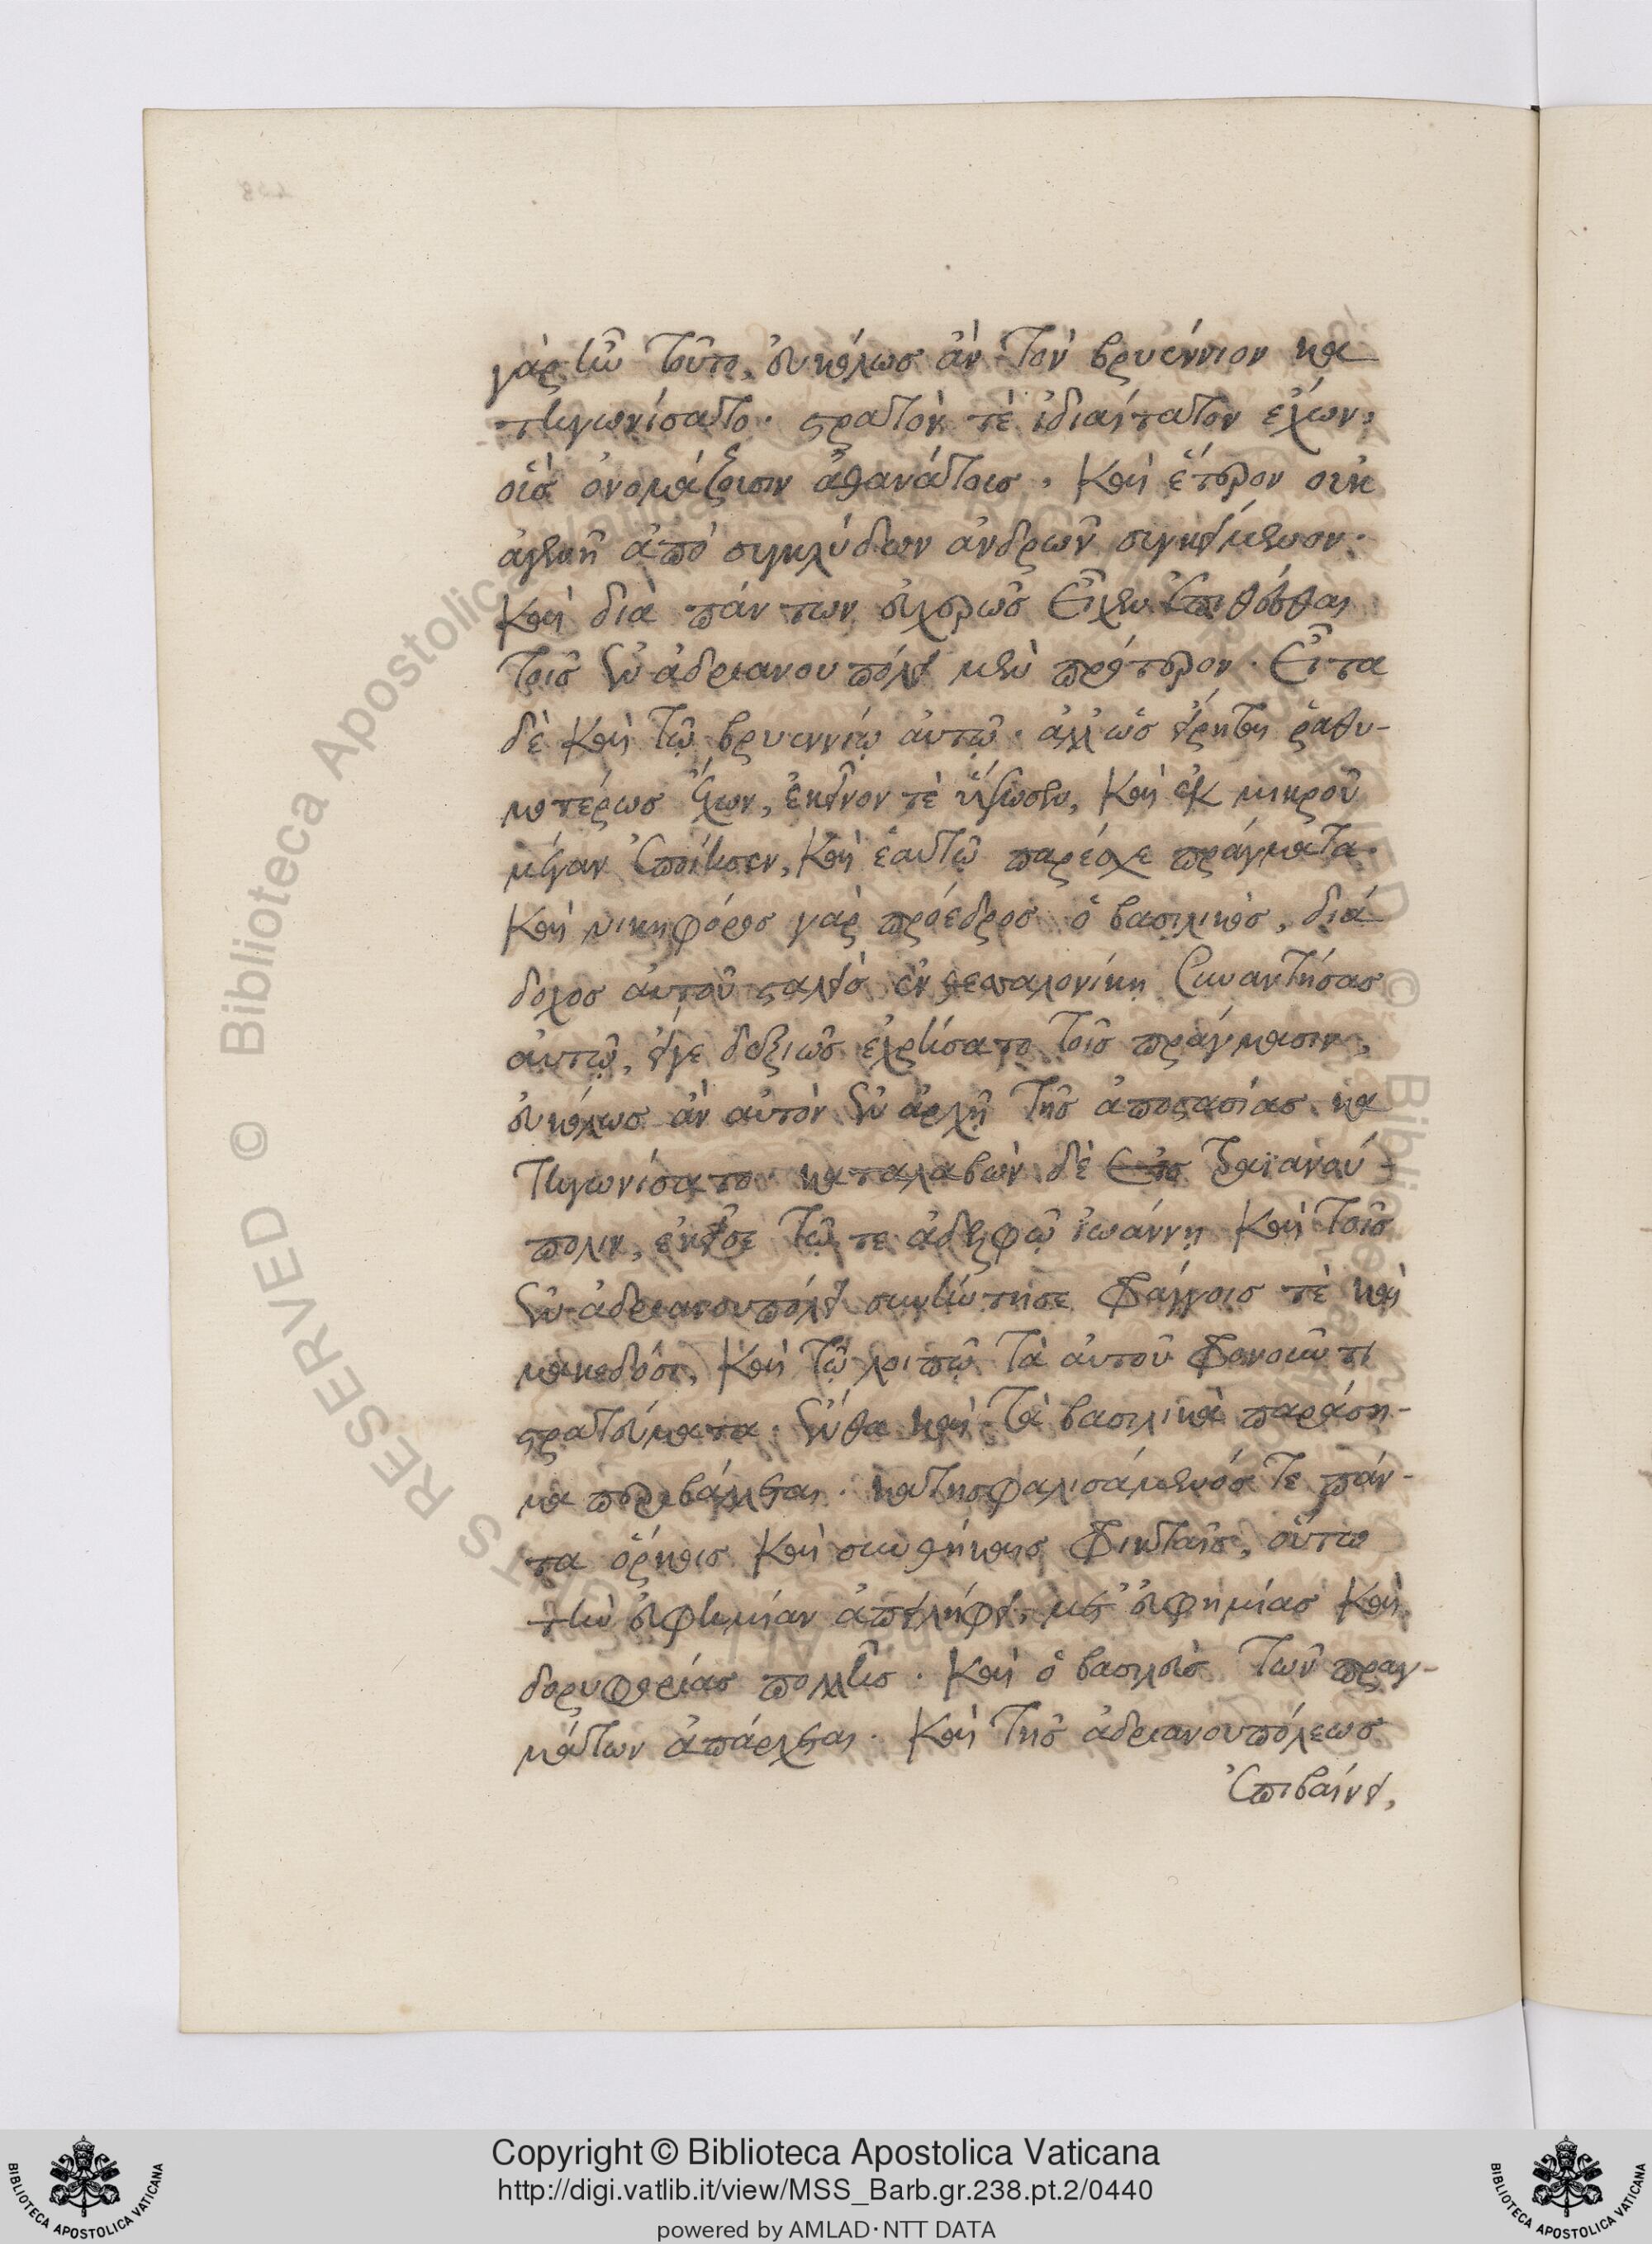 γὰρ ἦν τοῦτο, εὐκόλως ἂν τὸν βρυέννιον κα
τηγωνίσατο· στρατὸν τὲ ἰδιαίτατον ἔχων,
οἷς ὀνομάζουσιν ἀθανάτοις, καὶ ἕτερον οὐκ
ἀγενῆ ἀπὸ συγκλύδων ἀνδρῶν συγκείμενον·
καὶ διὰ πάντων εὐχερῶς εἶχεν ἐπιθέσθαι
τοῖς ἐν ἀδριανουπόλει μὲν πρότερον. εἶτα
δὲ καὶ τῷ βρυεννίῳ αὐτῷ· ἀλλ' ὡς εἴρηται ῥαθυ-
μοτέρως ἔχων, ἐκεῖνον τὲ ὕψωσεν, καὶ ἐκ μικροῦ
μέγαν ἐποίησεν, καὶ ἑαυτῷ παρέσχε πράγματα.
καὶ νικηφόρος γὰρ πρόεδρος ὁ βασιλικὸς, διά
δοχος αὐτοῦ σταλεὶς ἐν θεσσαλονίκῃ συναντήσας
αὐτῷ, εἴγε δεξιῶς ἐχρήσατο τοῖς πράγμασιν,
εὐκόλως ἂν αὐτὸν ἐν ἀρχῇ τῆς ἀποστασίας κα
τηγωνίσατο· καταλαβὼν δὲ εἰς τραϊανού
πολιν, ἐκεῖσε τῷ τε ἀδελφῷ ἰωάννῃ καὶ τοῖς
ἐν ἀδριανουπόλει συνήντησε φράγγοις τὲ καὶ
μακεδόσι, καὶ τῷ λοιπῷ τὰ αὐτοῦ φρονοῦντι
στρατεύματα. ἔνθα καὶ τὰ βασιλικὰ παράση-
μα περιβάλλεται. κατησφαλισάμενός τε πάν-
τα ὅρκοις καὶ συνθήκαις φρικταῖς, οὕτω
τὴν εὐφημίαν ἀπείληφει, μετ' εὐφημίας καὶ
δορυφορίας πολλῆς. καὶ ὁ βασιλεὺς τῶν πραγ-
μάτων ἀπάρχεται. καὶ τῆς ἀδριανουπόλεως
ἐπιβαίνει,
Copyright © Biblioteca Apostolica Vaticana
http://digi.vatlib.it/view/MSS_Barb.gr.238.pt.2/0440
powered by AMLAD·NTT DATA